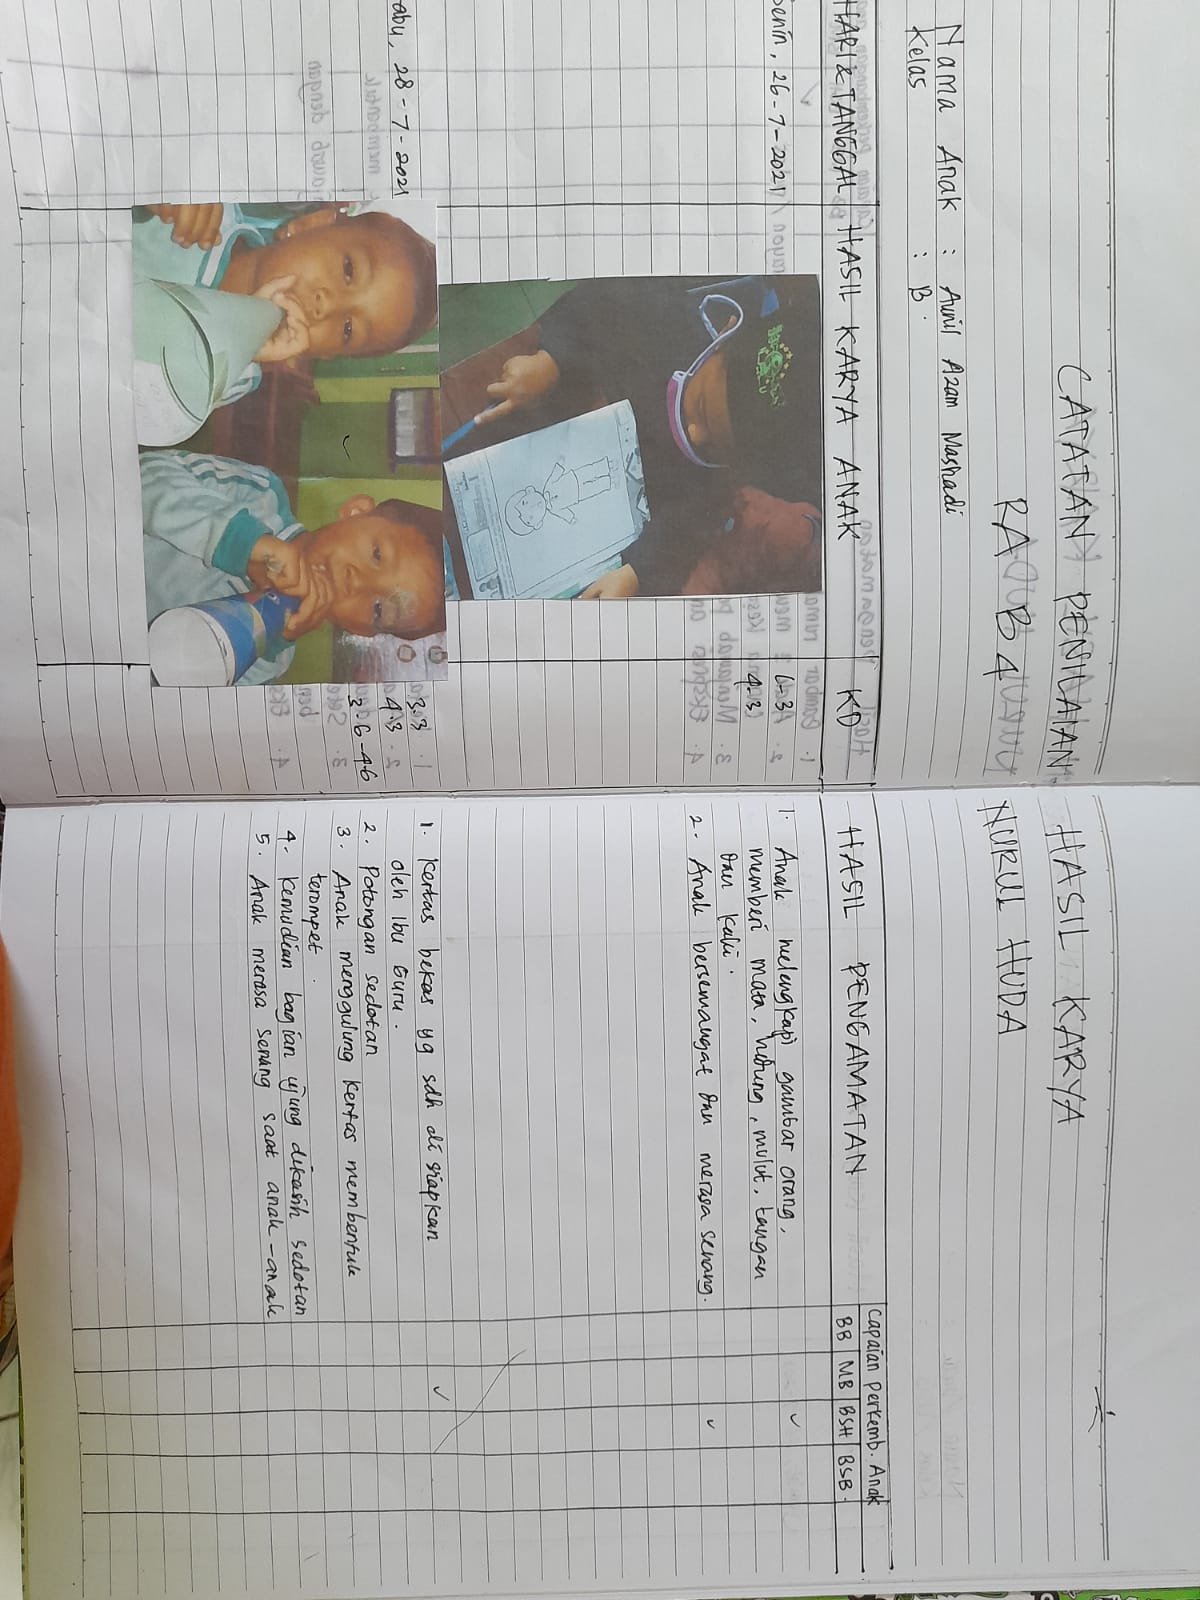 CATATAN PENILAIAN HASIL KARYA
RA B4 NURUL HUDA
Nama Anak : Aunil Azam Mashadi
Kelas : B.
HARI & TANGGAL
HASIL KARYA ANAK
KD
HASIL PENGAMATAN
Capaian Perkemb. Anak
BB MB BSH BSB.
Senin, 26-7-2021
3-3
4-3
1. Anak melengkapi gambar orang,
memberi mata, hidung, mulut, tangan
dan kaki.
2. Anak bersemangat dan merasa senang.
✓
✓
abu, 28-7-2021
3.3
4.3
3.6-4.6
1. Kertas bekas yg sdh di siapkan
oleh Ibu Guru.
2. Potongan sedotan
3. Anak menggulung kertas membentuk
terompet.
4. Kemudian bagian ujung dikasih sedotan
5. Anak merasa senang saat anak-anak
✓